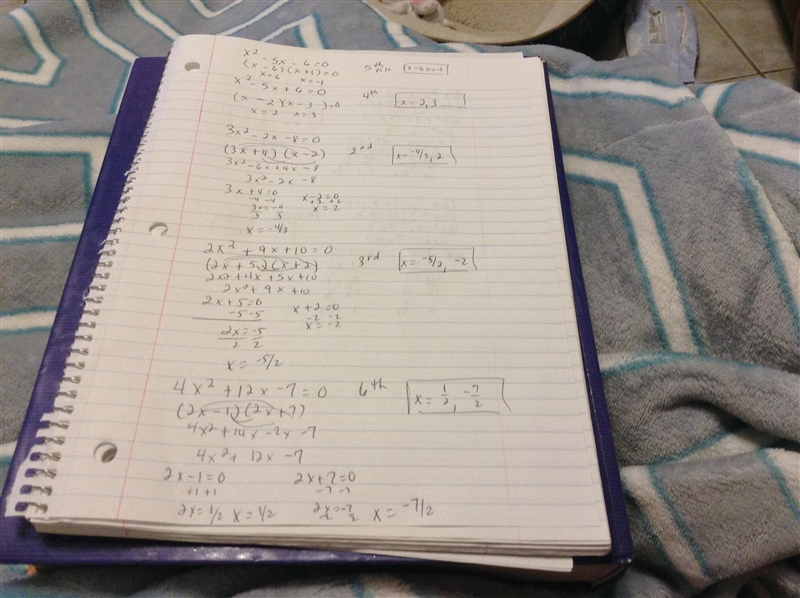 x² - 5x - 6 = 0
(x - 6)(x + 1) = 0 5th
x = 6 x = -1 x = 6 x = -1
x² - 5x + 6 = 0
(x - 2)(x - 3) = 0 4th x = 2, 3
x = 2 x = 3
3x² - 2x - 8 = 0
(3x + 4)(x - 2) 2nd x = -4/3, 2
3x² - 6x + 4x - 8
3x² - 2x - 8
3x + 4 = 0 x - 2 = 0
-4 -4 +2 +2
3x = -4 x = 2
3 3
x = -4/3
2x² + 9x + 10 = 0
(2x + 5)(x + 2) 3rd x = -5/2, -2
2x² + 4x + 5x + 10
2x² + 9x + 10
2x + 5 = 0 x + 2 = 0
-5 -5 -2 -2
2x = -5 x = -2
2 2
x = -5/2
4x² + 12x - 7 = 0 6th x = 1/2, -7/2
(2x - 1)(2x + 7)
4x² + 14x - 2x - 7
4x² + 12x - 7
2x - 1 = 0 2x + 7 = 0
+1 +1 -7 -7
2x = 1/2 x = 1/2 2x = -7 x = -7/2
2 2